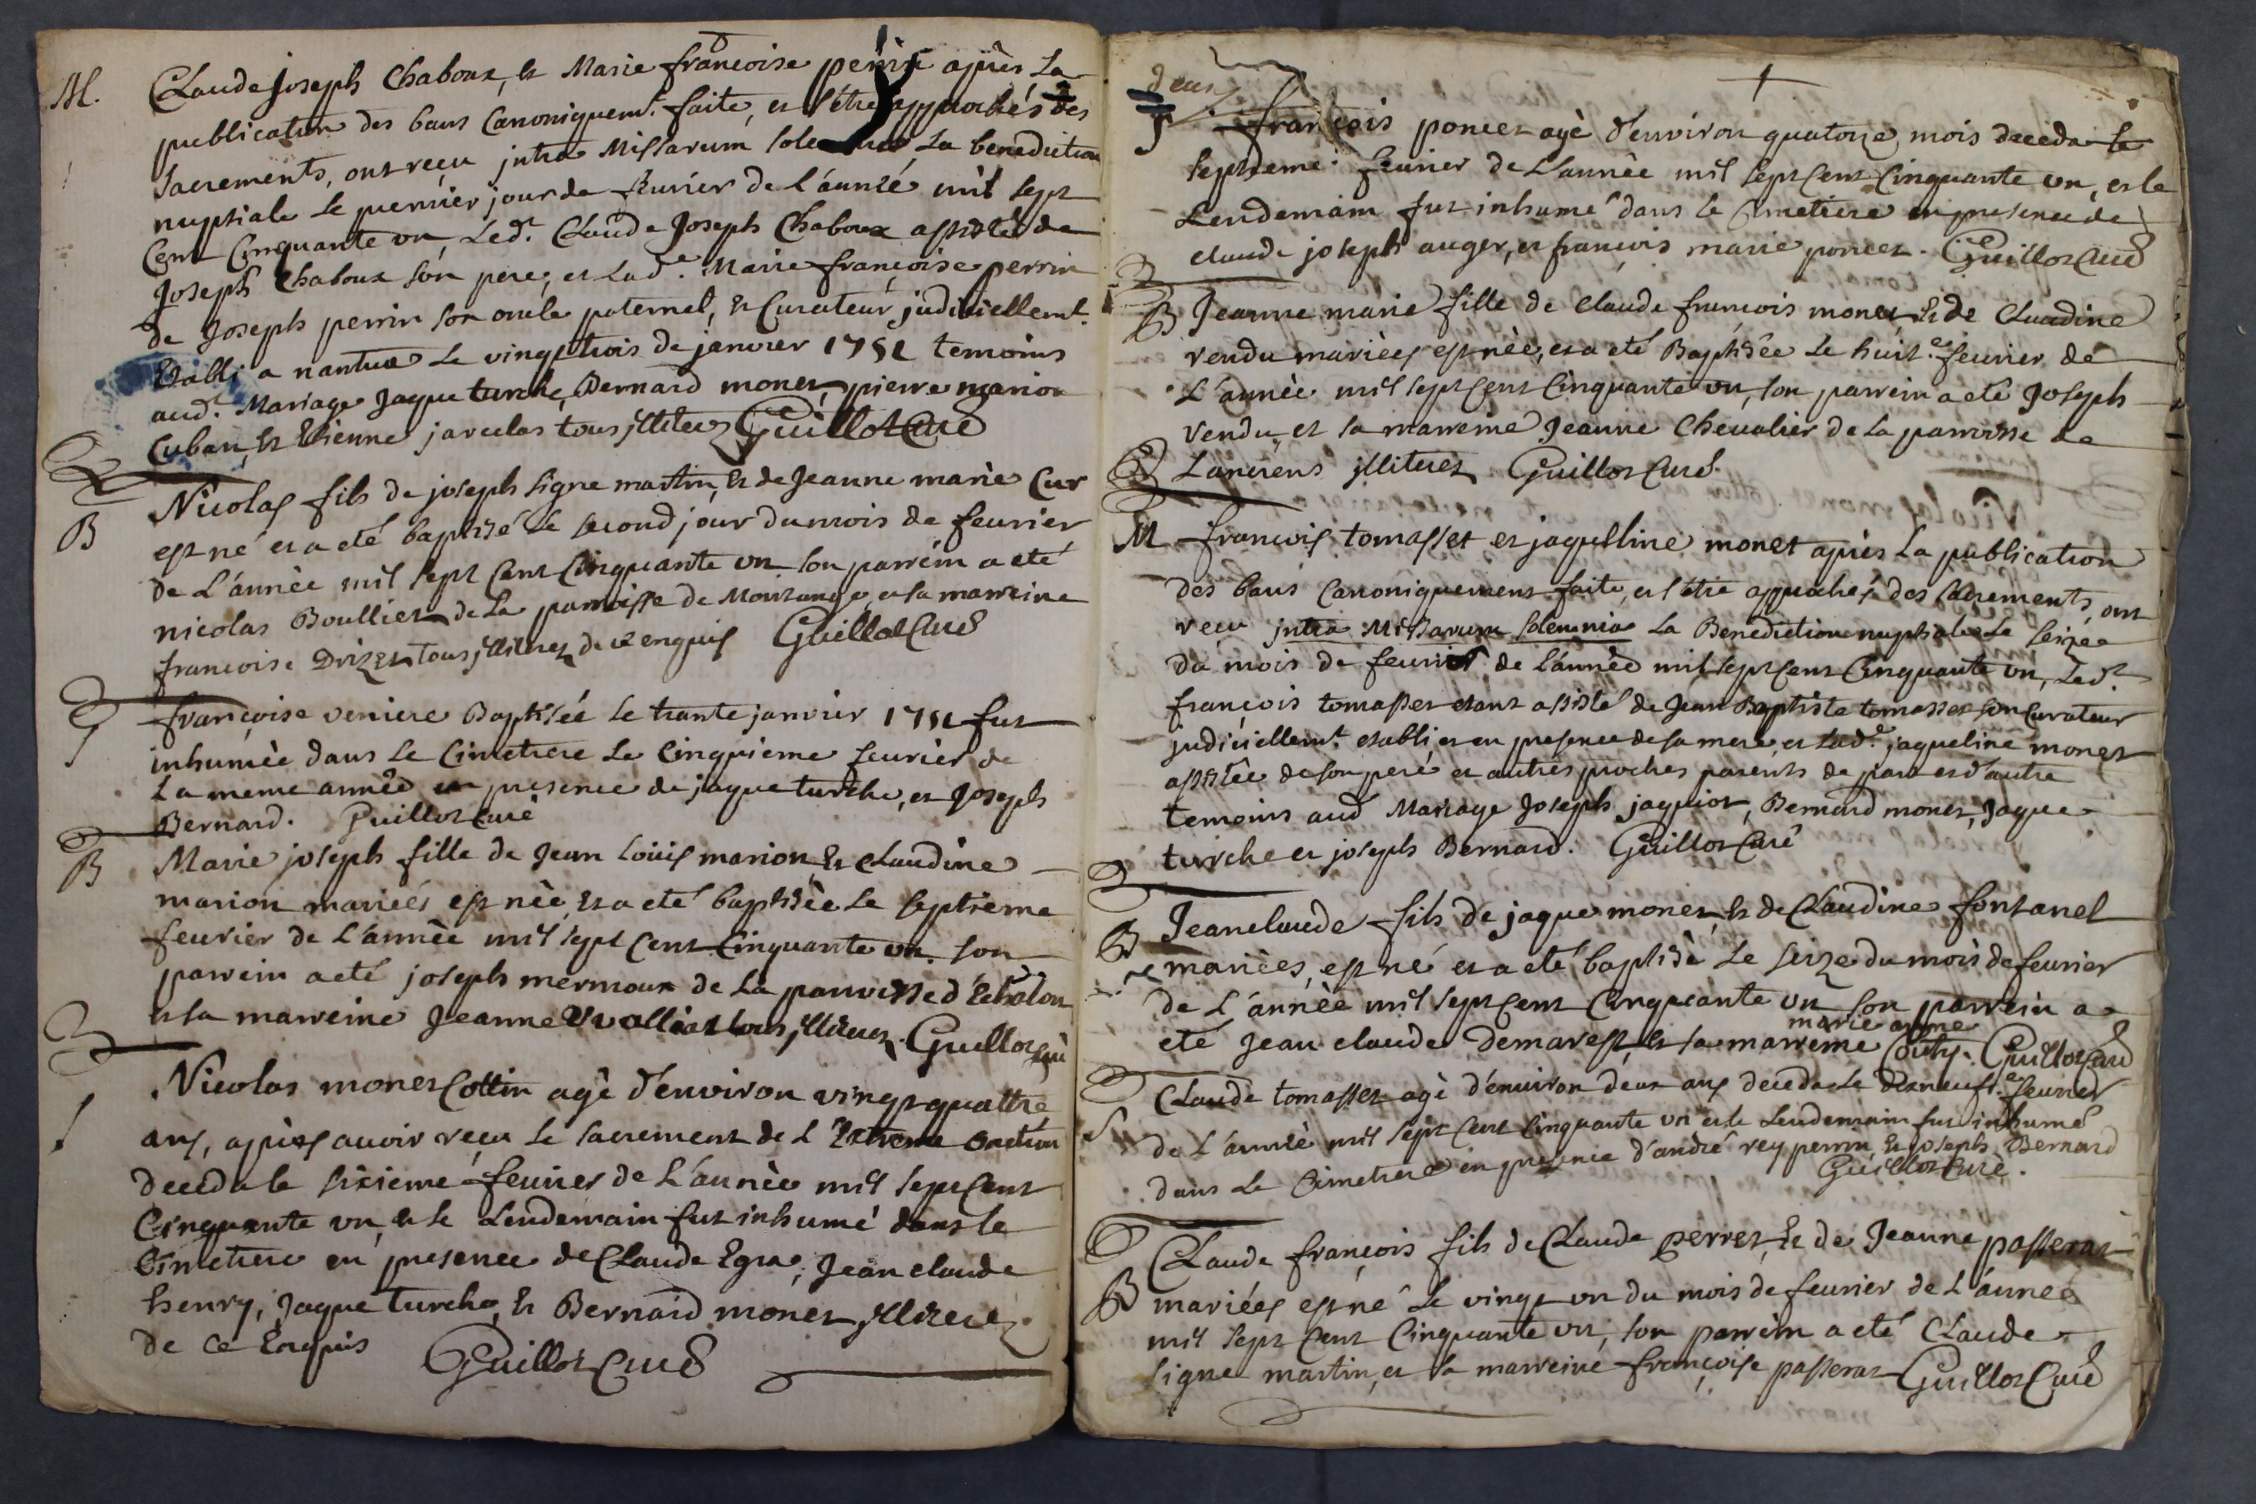 M. Claude joseph Chaboux, et Marie francoise perrin après La
publication des bans Canoniquemt. faite, et s'être approchés des
sacrements, ont reçu intra Missarum solemnia La benediction
nuptiale le premier jour de feurier de L'année mil sept
Cent Cinquante un, Led.t Claude Joseph Chaboux assisté de
Joseph Chaboux son pere, et Lad.e Marie françoise perrin
de Joseph perrin son oncle paternel, et Curateur judiciellemt.
établi a nantua Le vingt trois de janvier 1751 temoins
aud.t Mariage Jaque turche, Bernard monet, pierre marion
Cuban, et Etienne jarculas tous illiterez Guillot Curé
B Nicolas fils de joseph signe martin, et de Jeanne marie Cur
est né et a eté baptisé le second jour du mois de feurier
de L'année mil sept Cent Cinquante un son parrein a eté
nicolas Boullier de La parroisse de Montange, et sa marreine
francoise Drizet tous illiterez de ce enquis Guillot Curé
françoise veniere Baptisée Le trante janvier 1751 fut
inhumée dans Le Cimetiere Le Cinquieme feurier de
La meme année en presence de jaque turche, et Joseph
Bernard. Guillot Curé
B Marie joseph fille de Jean Loüis marion, et Claudine
marion mariées est née et a eté baptisée Le septieme
feurier de L'année mil sept Cent Cinquante un. son
parrein a eté joseph mermoux de La parroisse d'Echalon
et sa marreine Jeanne Vuolliat tous illiterez. Guillot Curé
Nicolas monet Cottin agé d'environ vingt quattre
ans, apres avoir reçu Le sacrement de L'Extreme onction
deceda le sixieme feurier de L'année mil sept Cent
Cinquante un, et le Lendemain fut inhumé dans le
Cimetiere en presence de Claude Egra, Jean claude
henry, Jaque turche, et Bernard monet illiterez
de Ce Enquis Guillot Curé
deux
françois poncet agé d'environ quatorze mois deceda le
septieme feurier de L'année mil sept Cent Cinquante un, et le
Lendemain fut inhumé dans le Cimetiere en presence de
claude joseph auger, et francois marie poncet. Guillot Curé
B Jeanne marie fille de claude francois monet et de Claudine
vendu mariées est née, et a eté Baptisée Le huit.e feurier de
L'année mil sept Cent Cinquante un, son parrein a eté Joseph
Vendu, et sa marreine Jeanne Chevalier de La parroisse de
Lancrens illiterez Guillot Curé.
M francois tomasset et jaqueline monet après La publication
des bans Canoniquement faite, et s'être approchés des sacrements, ont
reçu intra Missarum solemnia La Benediction nuptiale Le seize
du mois de feurier de L'année mil sept Cent Cinquante un, Led.t
françois tomasset etant assisté de Jean Baptiste tomasset son Curateur
judiciellemt. etabli, et en presence de sa mere, et Lad.e jaqueline monet
assistée de son peré et autres proches parents de part et d'autre
temoins aud Mariage Joseph jaquiot, Bernard monet, Jaque
turche et joseph Bernard. Guillot Curé
B Jean claude fils de jaque monet, et de Claudine fontanel
mariées, est né et a eté baptisé Le seize du mois de feurier
de L'année mil sept Cent Cinquante un son parrein a
eté Jean claude Demarest, et sa marreine marie anne Couty. Guillot Curé
Claude tomasset agé d'environ deux ans deceda Le dixneuf.e feurier
de L'année mil sept Cent Cinquante un et le Lendemain fut inhumé
dans Le Cimetiere en presence d'andré rey perrin, et joseph Bernard
Guillot Curé.
B Claude françois fils de Claude perret, et de Jeanne passerat
mariées est né Le vingt un du mois de feurier de L'année
mil sept Cent Cinquante un, son parrein a eté Claude
signe martin, et sa marreine françoise passerat Guillot Curé